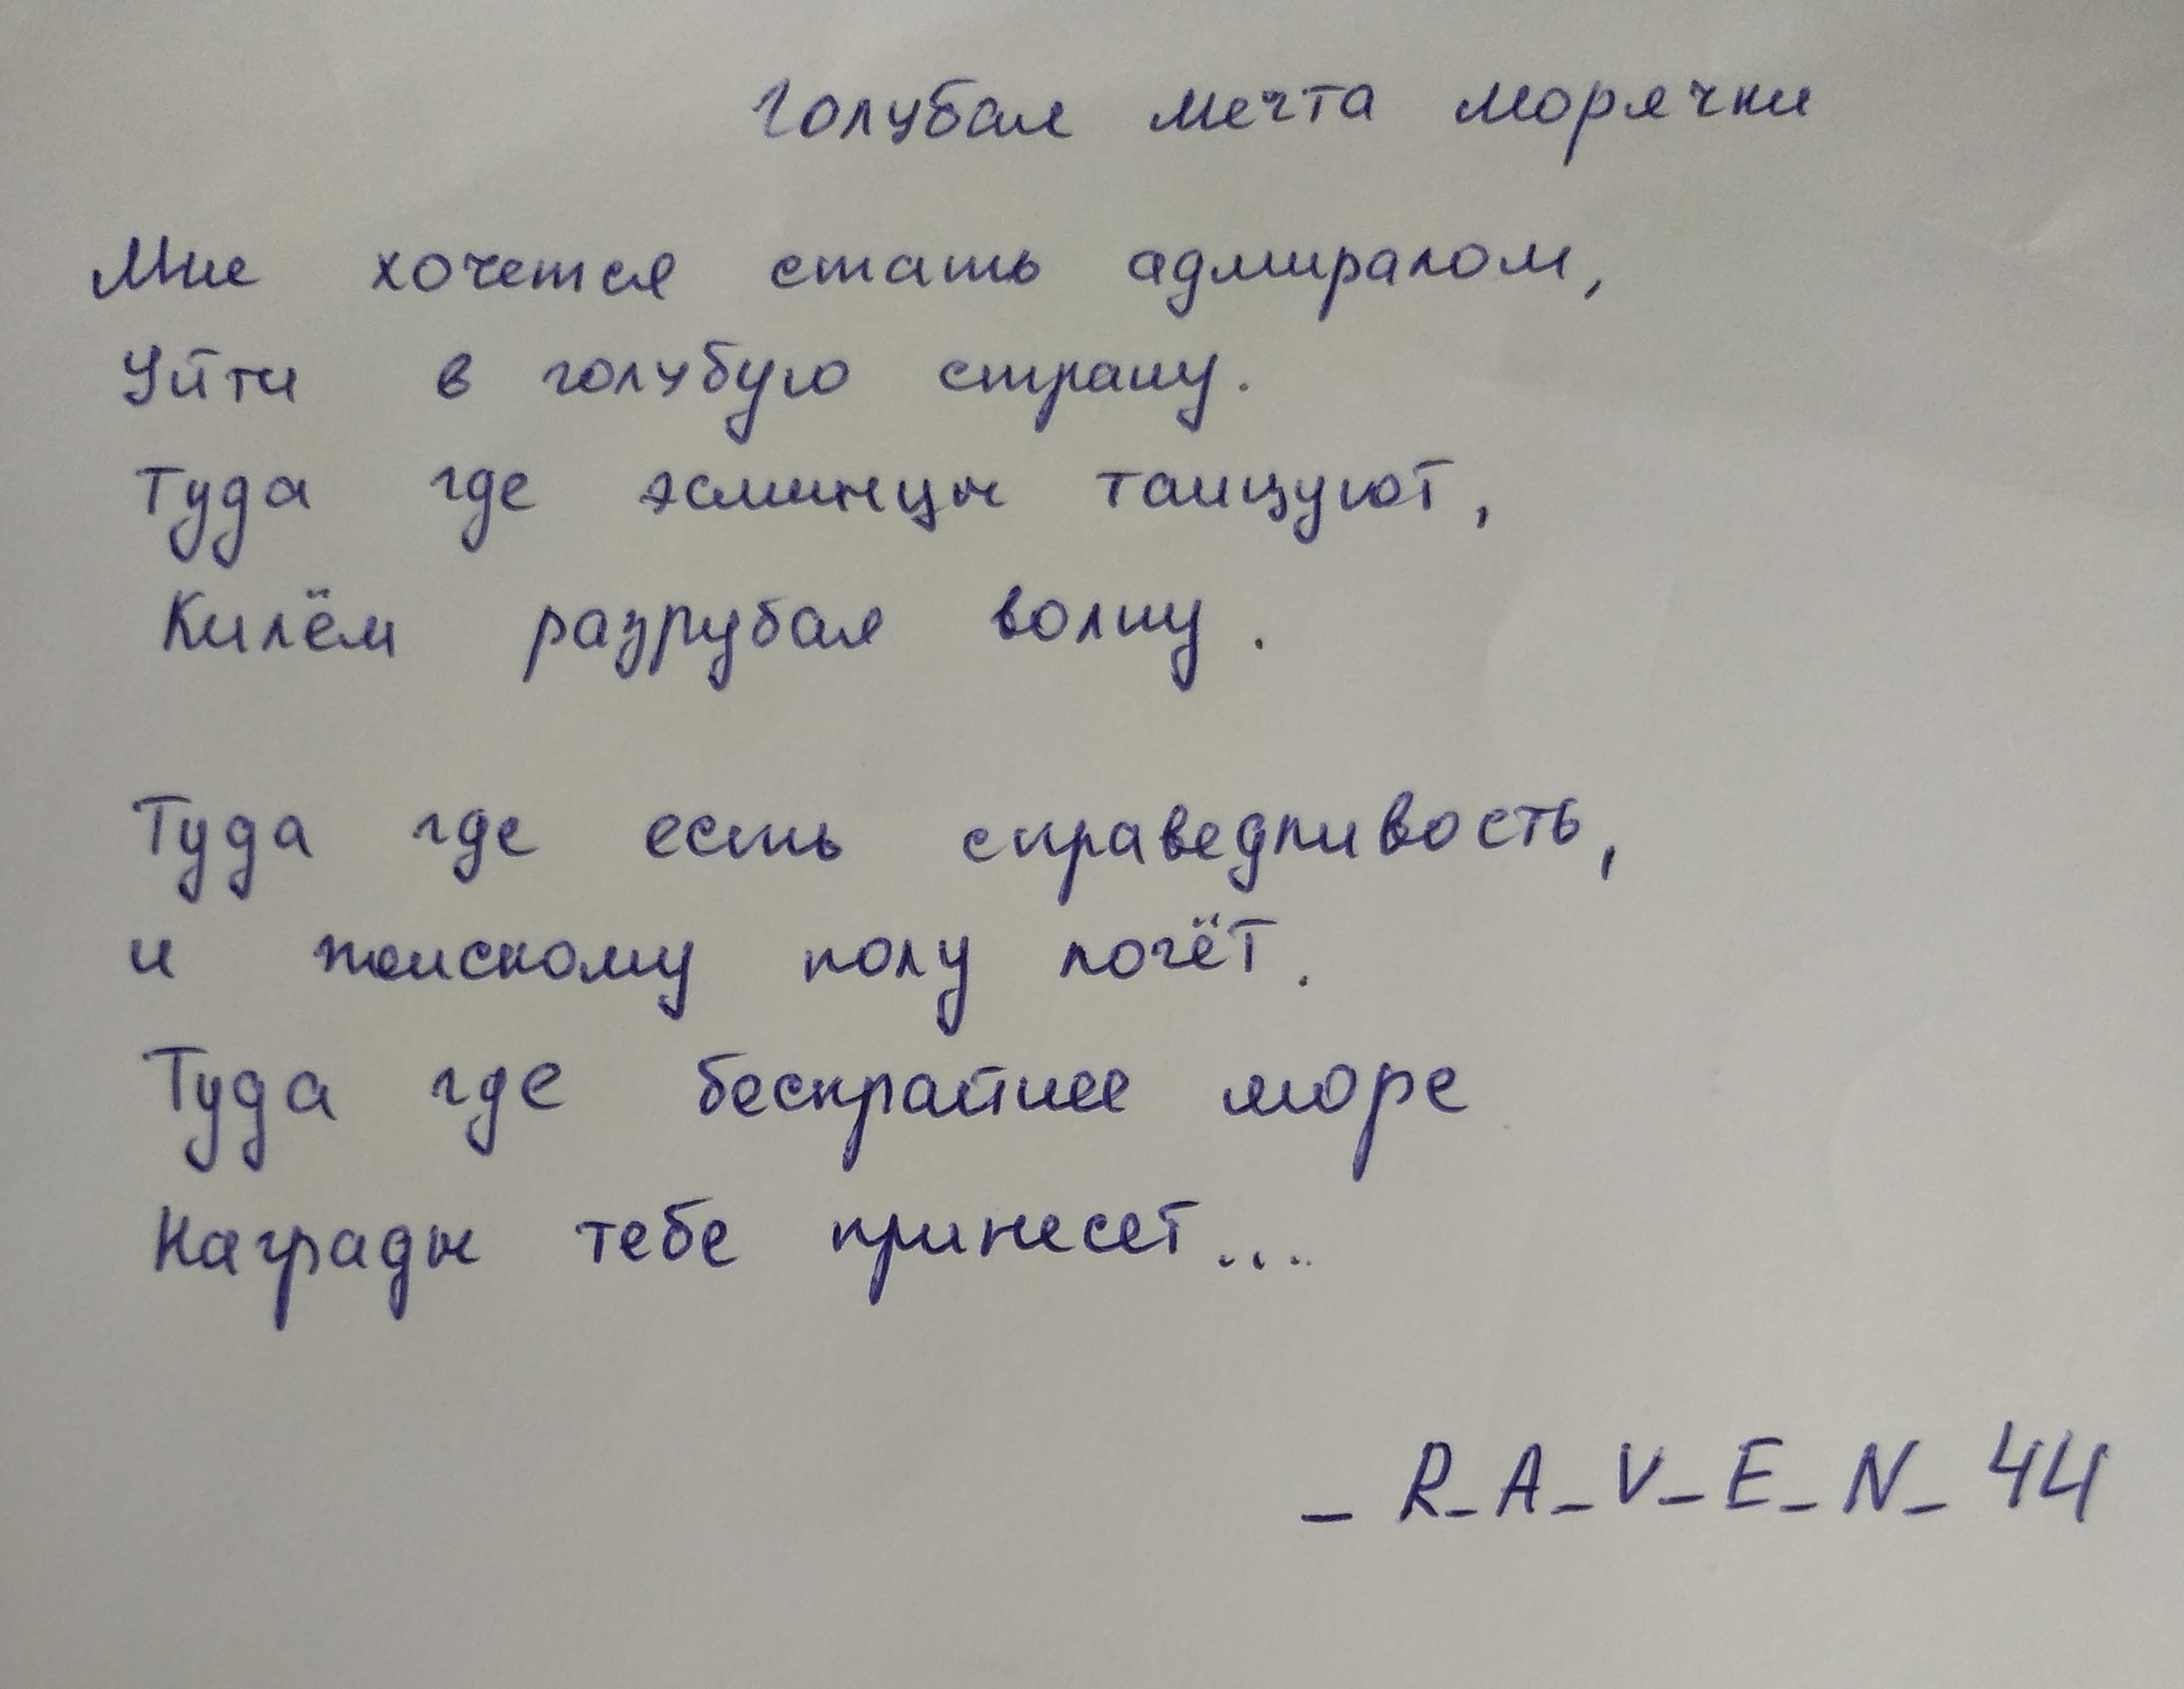 Голубая мечта морячки
Мне хочется стать адмиралом,
Уйти в голубую страну.
Туда где эсминцы танцуют,
Килём разрубая волну.
Туда где есть справедливость,
и женскому полу почёт.
Туда где бескрайнее море
Награды тебе принесет....
_ R_A_V_E_N_44